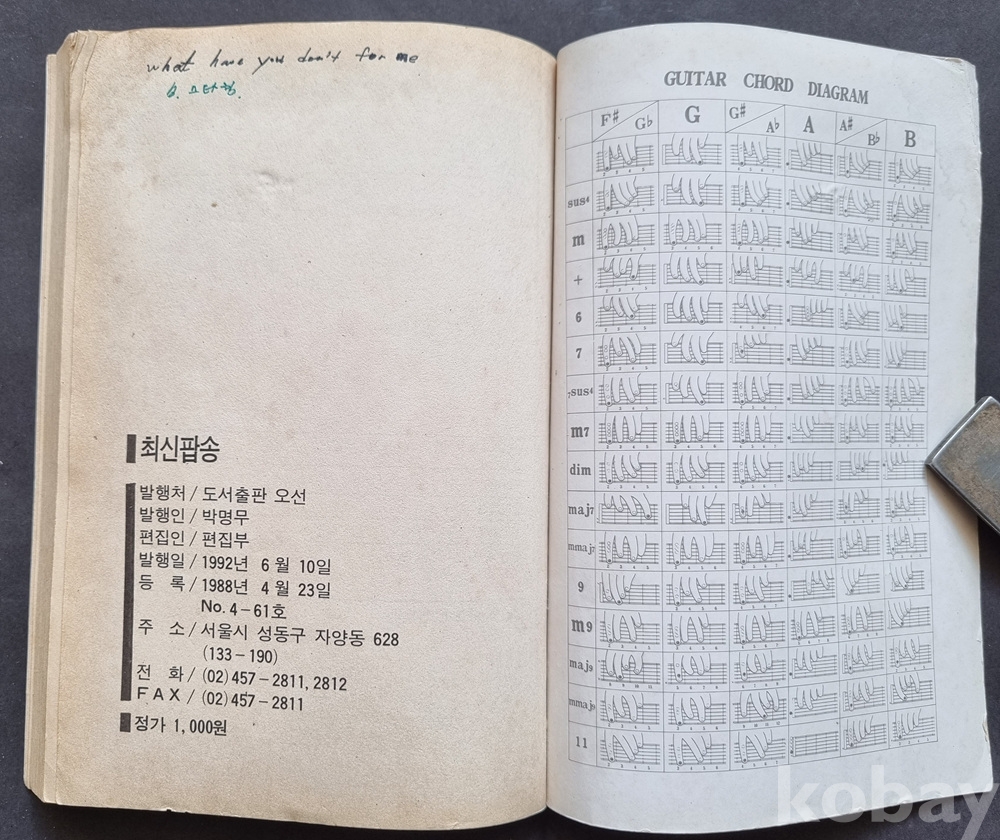 what have you don't for me
최신팝송
발행처/도서출판 오선
발행인/박명무
편집인/편집부
발행일/1992년 6월 10일
등 록/1988년 4월 23일
No. 4-61호
주 소/서울시 성동구 자양동 628
(133-190)
전 화/(02)457-2811, 2812
FAX/(02)457-2811
정가 1,000원
GUITAR CHORD DIAGRAM
F# G♭ G G# A♭ A A# B♭ B
sus4
m
+
6
7
7sus4
m7
dim
maj7
mmaj7
9
m9
maj9
mmaj9
11
kobay